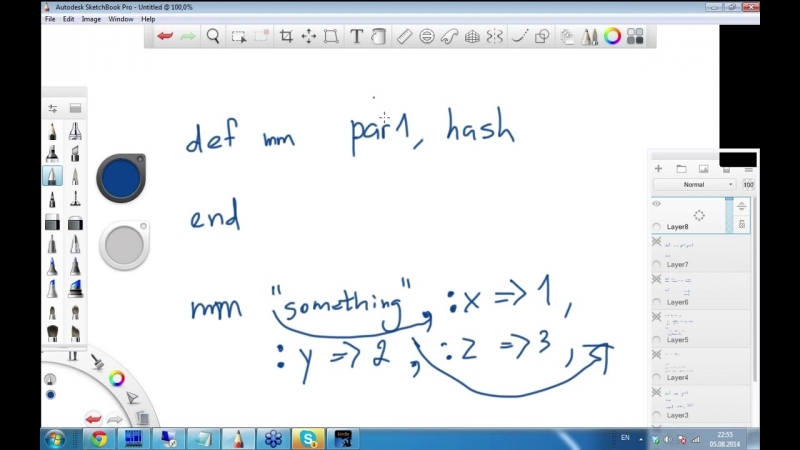 Autodesk SketchBook Pro - Untitled @ 100,0%
File Edit Image Window Help
def mm par1, hash
end
mm "something", :x => 1,
:y => 2, :z => 3,
Normal
100
Layer8
Layer7
Layer6
Layer5
Layer4
Layer3
EN
22:55
05.08.2014